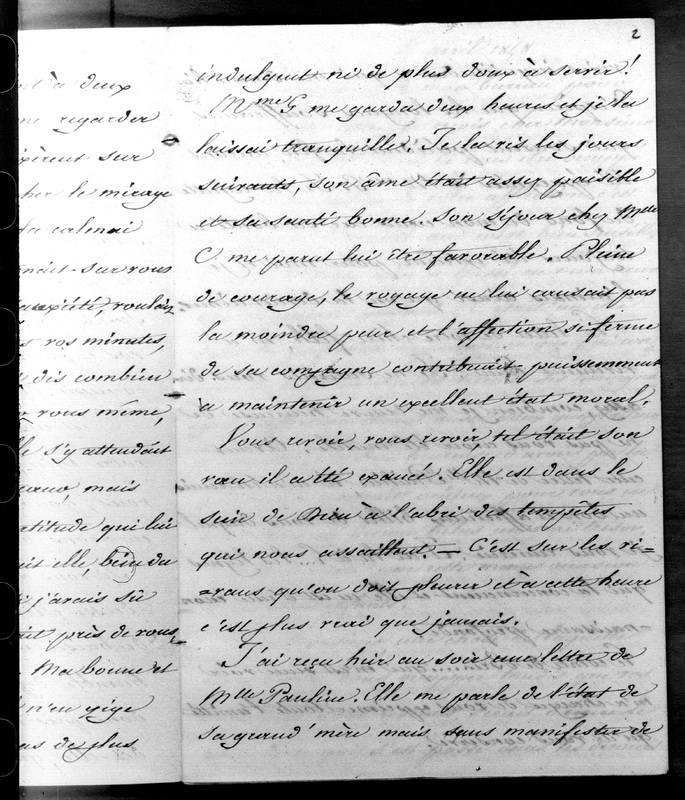 nt à deux
me regarder
xèrent sur
her le mirage
la calenai
nait-sur vous
anxiété, voulais
s vos minutes,
dis combien
vous même,
lle s'y attendait
mais
titude qui lui
it elle, bien du
j'avais sû
it près de vous,
Ma bonne et
n'en exige
as de plus
2
indulgent ni de plus doux à servir!
Mme G me garda deux heures et je la
laissai tranquille. Je la vis les jours
suivants, son âme était assez paisible
et sa santé bonne. Son séjour chez Mlle
C me parut lui être favorable. Pleine
de courage, le voyage ne lui causait pas
la moindre peur et l'affection si ferme
de sa compagne contribuait puissemment
a maintenir un excellent état moral.
Vous revoir, vous revoir, tel était son
vœu il a été exaucé. Elle est dans le
sein de Dieu à l'abri des tempêtes
qui nous assaillent. — C'est sur les vi=
=vans qu'on doit pleurer et à cette heure
c'est plus vrai que jamais.
J'ai reçu hier au soir une lettre de
Mlle Pauline. Elle me parle de l'état de
sa grand'mère mais sans manifester de